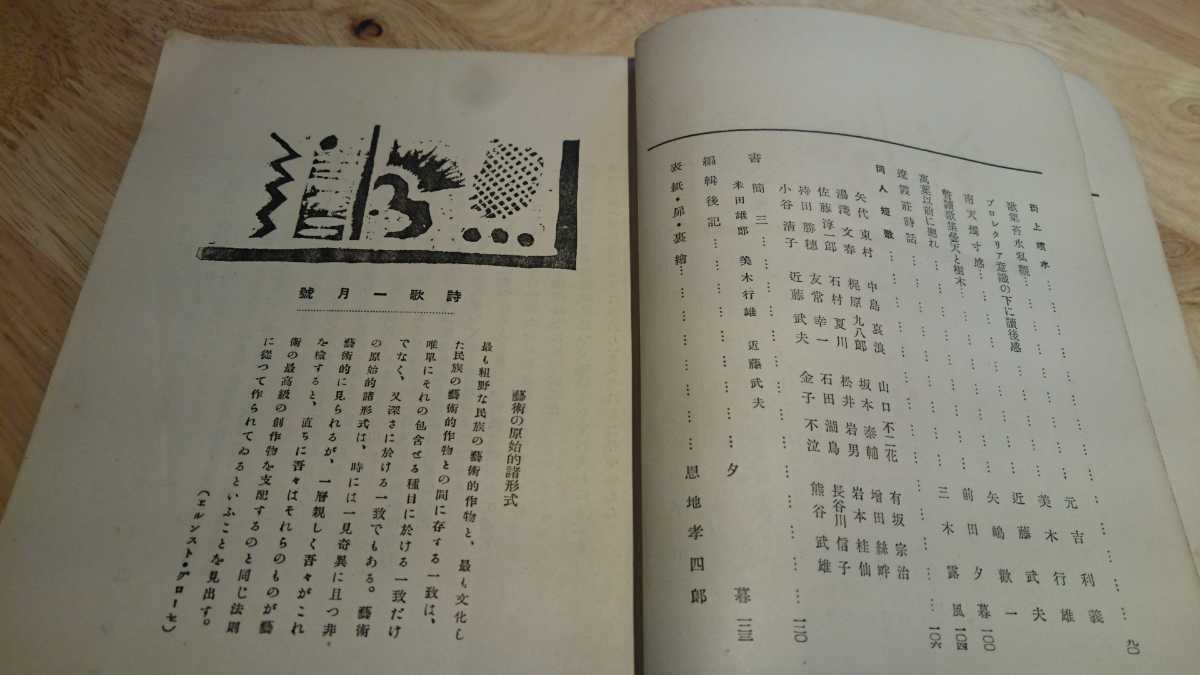 街上噴水……………元吉利義 九〇
歌集苔水私觀……………美木行雄
プロレタリア意識の下に讀後感……………近藤武夫
南天燭寸感……………矢嶋歡一
……………前田夕暮 一〇〇
萬葉以前に遡れ……………三木露風 一〇四
……………一〇六
同人短歌……………一一〇
矢代東村 中島哀浪 山口不二花 有坂宗治
湯淺文春 梶原九八郎 坂本泰輔 增田絲畔
佐藤淳一郎 石村夏川 松井岩男 岩本桂仙
持田勝穗 友常幸一 石田湖鳥 長谷川信子
小谷清子 近藤武夫 金子不泣 熊谷武雄
書簡三……………
米田雄郎 美木行雄 近藤武夫
編輯後記……………夕暮 一三三
表紙・扉・裏繪……………恩地孝四郎
詩歌一月號
藝術の原始的諸形式
最も粗野な民族の藝術的作物と、最も文化し
た民族の藝術的作物との間に存する一致は、
唯單にそれの包含せる種目に於ける一致だけ
でなく、又深さに於ける一致でもある。藝術
の原始的諸形式は、時には一見奇異に且つ非
藝術的に見られるが、一層親しく吾々がこれ
を檢すると、直ちに吾々はそれらのものが藝
術の最高級の創作物を支配するのと同じ法則
に從つて作られてゐるといふことを見出す。
（エルンスト・グローセ）